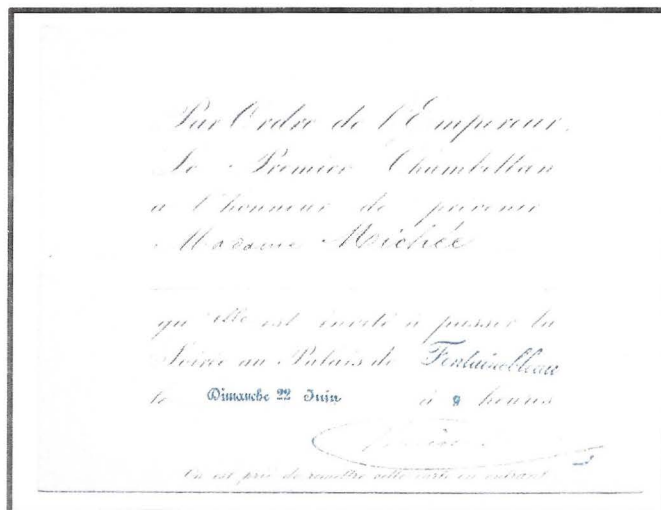 Par Ordre de l'Empereur,
Le Premier Chambellan
a l'honneur de prévenir
Madame Michée
qu'elle est invité à passer la
Soirée au Palais de Fontainebleau
le Dimanche 22 Juin à 9 heures
On est prié de remettre cette carte en entrant